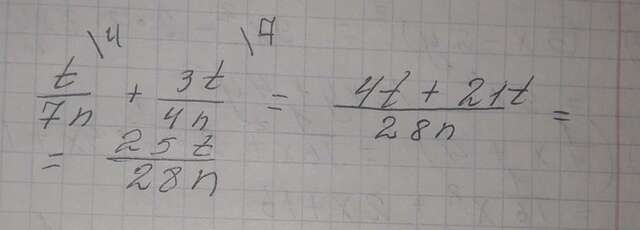 t/7n \4 + 3t/4n \7 = (4t + 21t)/28n =
= 25t/28n